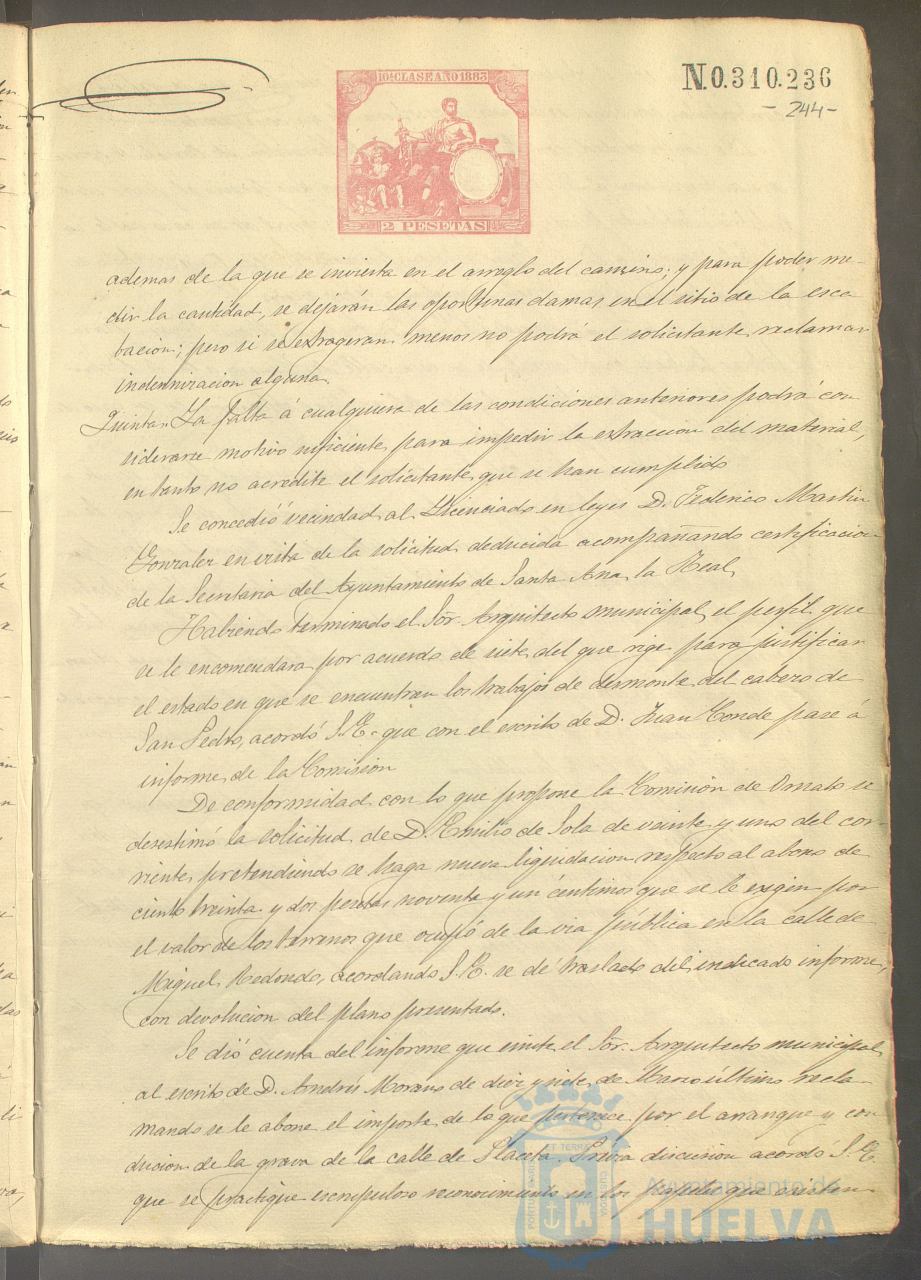 10ª CLASE AÑO 1883
N.0.310.236
- 244 -
2 PESETAS
ademas de la que se invierta en el arreglo del camino; y para poder me-
dir la cantidad, se dejarán las oportunas damas en el sitio de la esca
bacion; pero si se extrageran menos no podrá el solicitante reclamar
indemnizacion alguna.
Quinta= La falta á cualquiera de las condiciones anteriores podrá con
siderarse motivo suficiente para impedir la extraccion del material,
en tanto no acredite el solicitante que se han cumplido
Se concedió vecindad al Licenciado en leyes D. Federico Martin
Gonzalez en vista de la solicitud deducida acompañando certificacion
de la Secretaria del Ayuntamiento de Santa Ana la Real,
Habiendo terminado el Sor. Arquitecto municipal el perfil que
se le encomendara por acuerdo de siete del que rige para justificar
el estado en que se encuentran los trabajos de desmonte del cabezo de
San Pedro, acordó S.E. que con el escrito de D. Juan Conde pase á
informe de la Comision
De conformidad con lo que propone la Comision de Ornato se
desestimó la solicitud de D. Emilio de Sola de veinte y uno del cor-
riente, pretendiendo se haga nueva liquidacion respecto al abono de
ciento treinta y dos pesetas noventa y un centimos que se le exigen por
el valor de los terrenos que ocupó de la via pública en la calle de
Miguel Redondo, acordando S.E. se dé traslado del indicado informe,
con devolucion del plano presentado.
Se dió cuenta del informe que emite el Sor. Arquitecto municipal
al escrito de D. Andrés Morano de diez y siete de Marzo último recla-
mando se le abone el importe de lo que pertenece por el arranque y con
duccion de la grava de la calle de Placeta. Previa discusion acordó S.E.
que se practique escrupuloso reconocimiento en los que existen
Ayuntamiento de
HUELVA